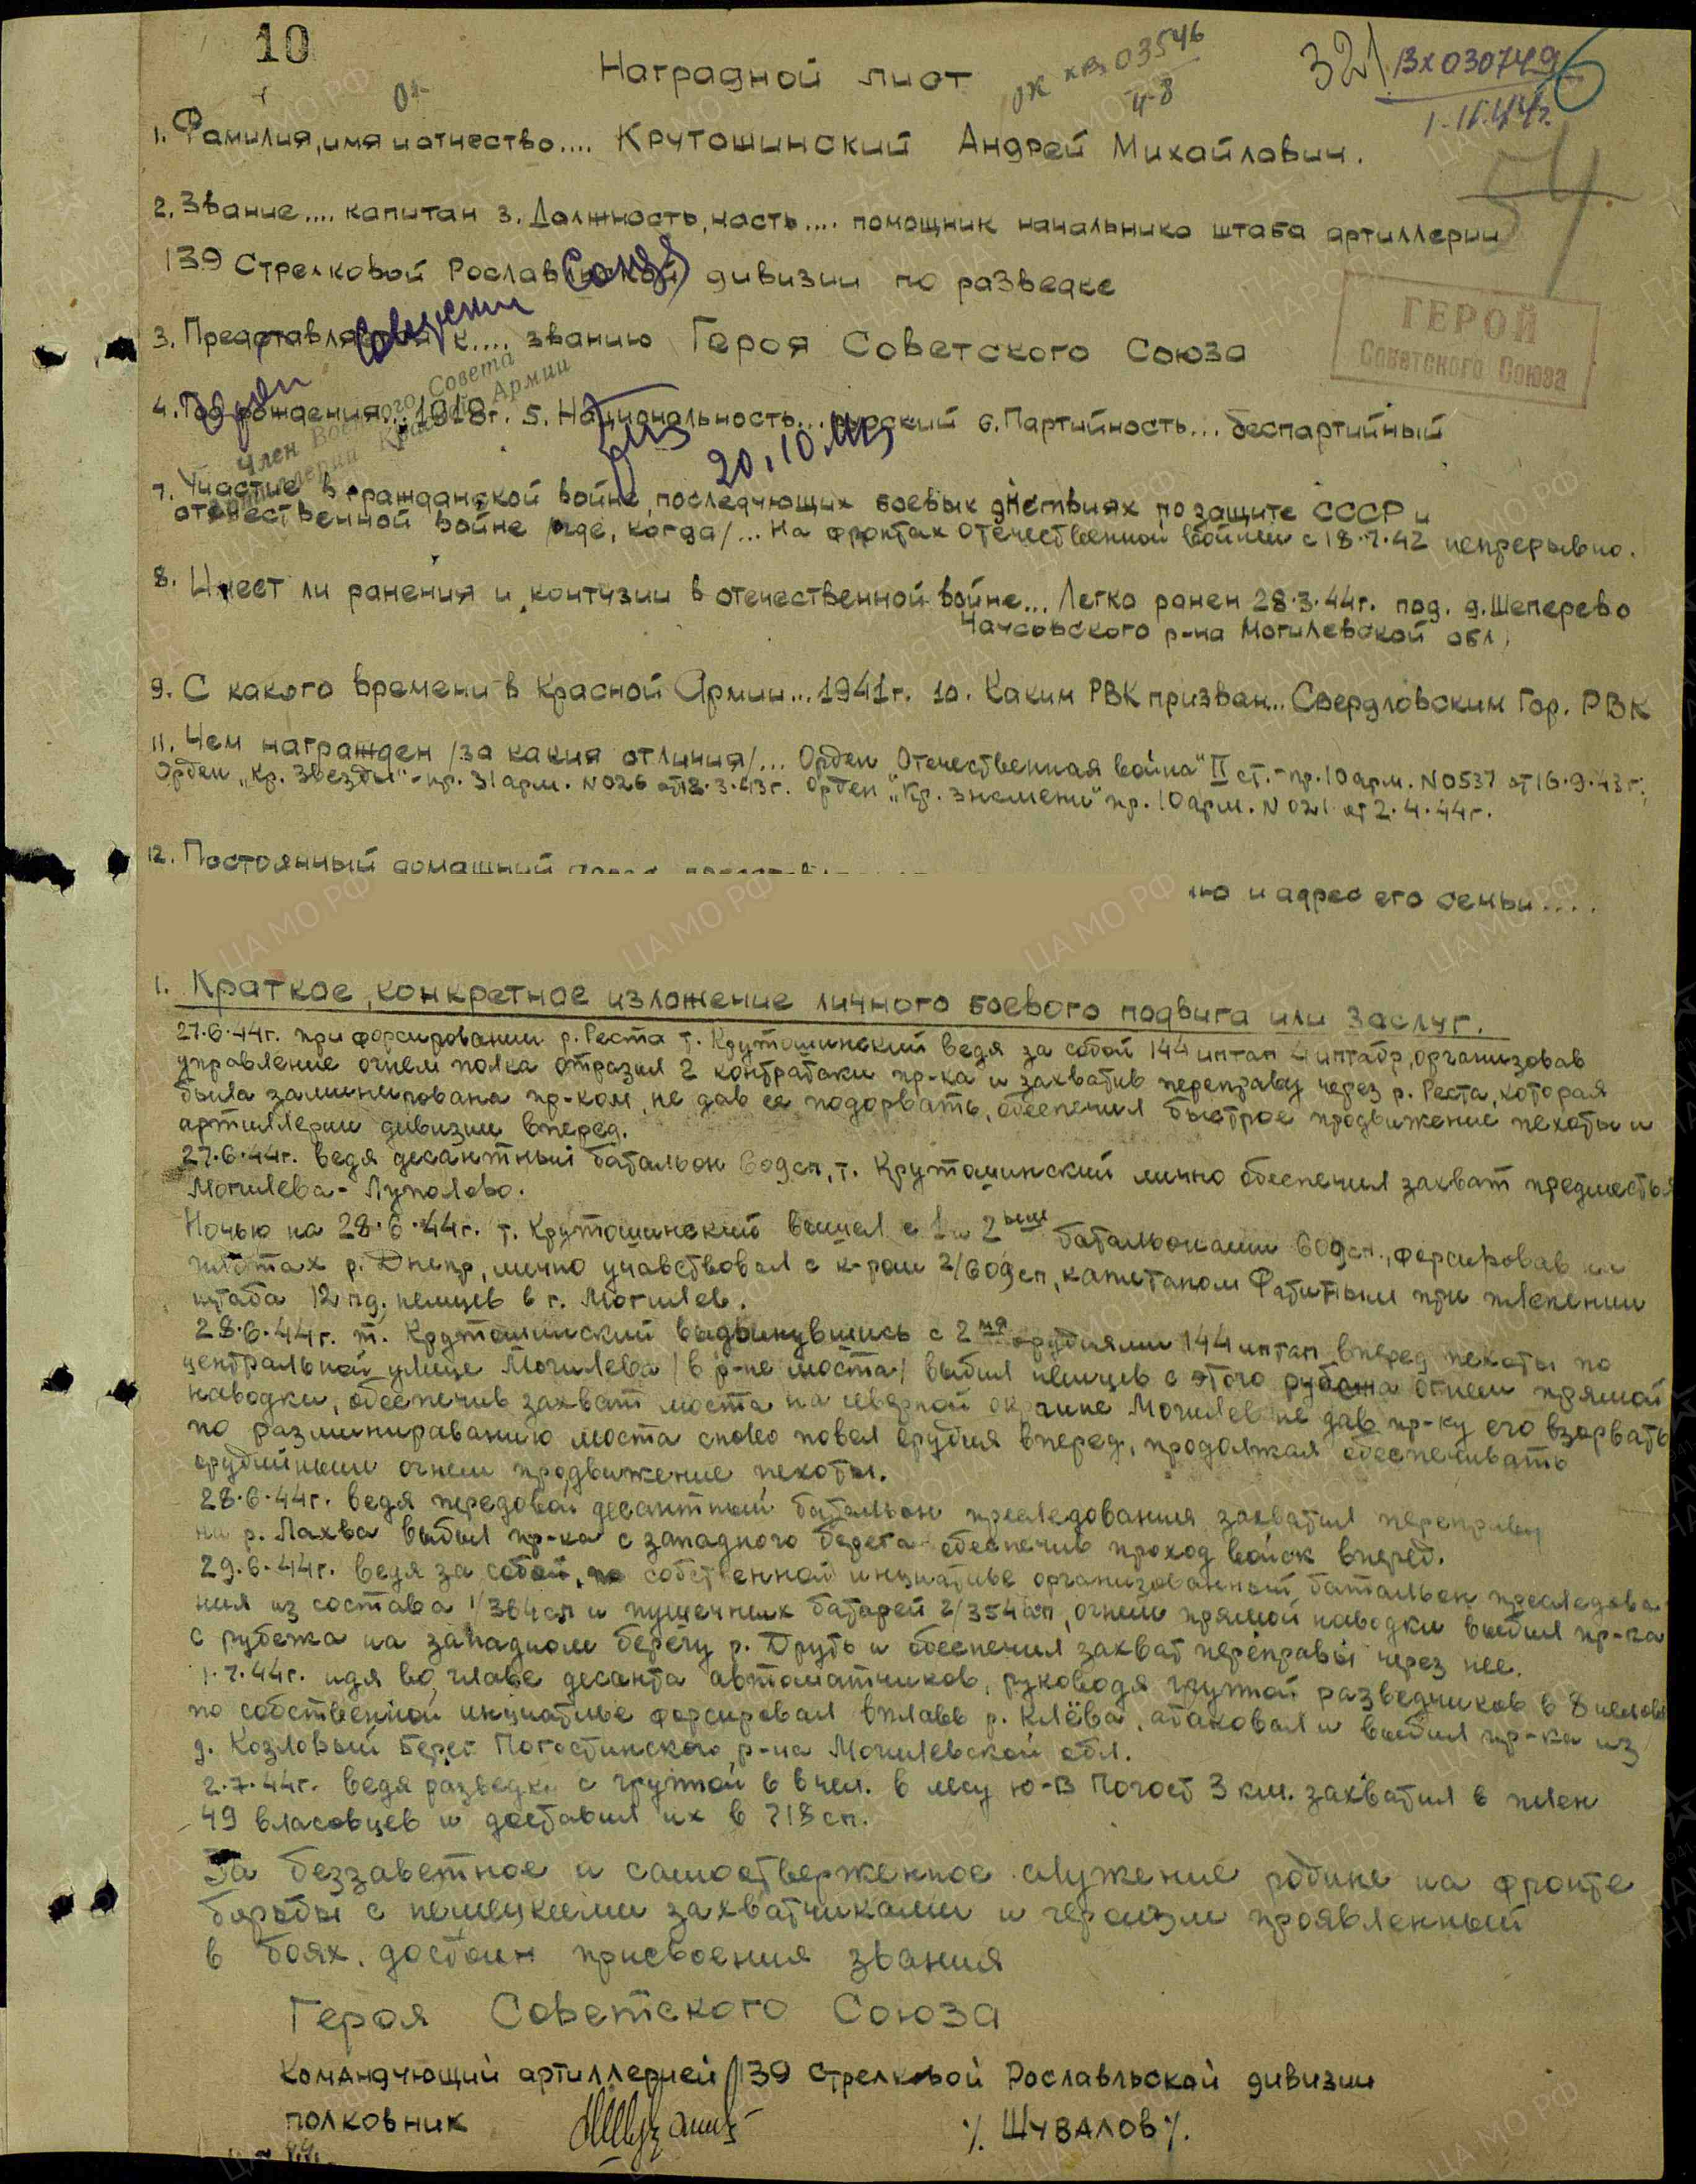 10
Наградной лист
ок кв 03546
4-8
321
Вх 030749
54.
1. Фамилия, имя и отчество.... Крутошинский Андрей Михайлович.
2. Звание.... капитан 3. Должность, часть.... помощник начальника штаба артиллерии
139 Стрелковой Рославльской дивизии по разведке
3. Представляется к.... званию Героя Советского Союза
ГЕРОЙ
Советского Союза
Член Военного Совета
Артиллерии Красной Армии
20.10.
4. Год рождения... 1918г. 5. Национальность... русский 6. Партийность... беспартийный
7. Участие в гражданской войне, последующих боевых действиях по защите СССР и
отечественной войне /где, когда/... На фронтах Отечественной войны с 18.7.42 непрерывно.
8. Имеет ли ранения и контузии в отечественной войне... Легко ранен 28.3.44г. под. д. Шеперево
Чаусовского р-на Могилевской обл.
9. С какого времени в Красной Армии... 1941г. 10. Каким РВК призван... Свердловским Гор. РВК
11. Чем награжден /за какия отличия/... Орден „Отечественная война" II ст. - пр. 10 арм. N 0537 от 16.9.43г;
Орден „Кр. Звезды" - пр. 31 арм. N 026 от 18.3.43г. Орден „Кр. знамени" пр. 10 арм. N 021 от 2.4.44г.
12. Постоянный домашний
и адрес его семьи....
1. Краткое, конкретное изложение личного боевого подвига или заслуг.
27.6.44г. при форсировании р. Реста т. Крутошинский ведя за собой 144 иптап 4 иптабр, организовав
управление огнем полка отразил 2 контратаки пр-ка и захватив переправу через р. Реста, которая
была заминирована пр-ком, не дав ее подорвать, обеспечил быстрое продвижение пехоты и
артиллерии дивизии вперед.
27.6.44г. ведя десантный батальон 609сп, т. Крутошинский лично обеспечил захват предместья
Могилева - Луполово.
Ночью на 28.6.44г. т. Крутошинский вышел с 1 и 2ым батальонами 609сп., форсировав на
плотах р. Днепр, лично учавствовал с к-ром 2/609сп, капитаном при пленении
штаба 12 пд. немцев в г. Могилев.
28.6.44г. т. Крутошинский выдвинувшись с 2мя орудиями 144 иптап вперед пехоты по
центральной улице Могилева /в р-не моста/ выбил немцев с этого рубежа огнем прямой
наводки, обеспечив захват моста на северной окраине Могилев не дав пр-ку его взорвать
по разминированию моста снова повел орудия вперед, продолжая обеспечивать
орудийным огнем продвижение пехоты.
28.6.44г. ведя передовой десантный батальон преследования захватил переправу
на р. Лахва выбил пр-ка с западного берега обеспечив проход войск вперед.
29.6.44г. ведя за собой, по собственной инициативе организованный батальон преследова-
ния из состава 1/364сп и пушечных батарей 2/354 , огнем прямой наводки выбил пр-ка
с рубежа на западном берегу р. Друть и обеспечил захват переправы через нее.
1.7.44г. идя во главе десанта автоматчиков, руководя группой разведчиков в 8 человек
по собственной инициативе форсировал вплавь р. Клёва, атаковал и выбил пр-ка из
д. Козловый Берег Погостинского р-на Могилевской обл.
2.7.44г. ведя разведку с группой в 6 чел. в лесу ю-В Погост 3 км. захватил в плен
49 власовцев и доставил их в 718сп.
За беззаветное и самоотверженное служение родине на фронте
борьбы с немецкими захватчиками и героизм проявленный
в боях, достоин присвоения звания
Героя Советского Союза
Командующий артиллерией 139 Стрелковой Рославльской дивизии
полковник
/. Шувалов /.